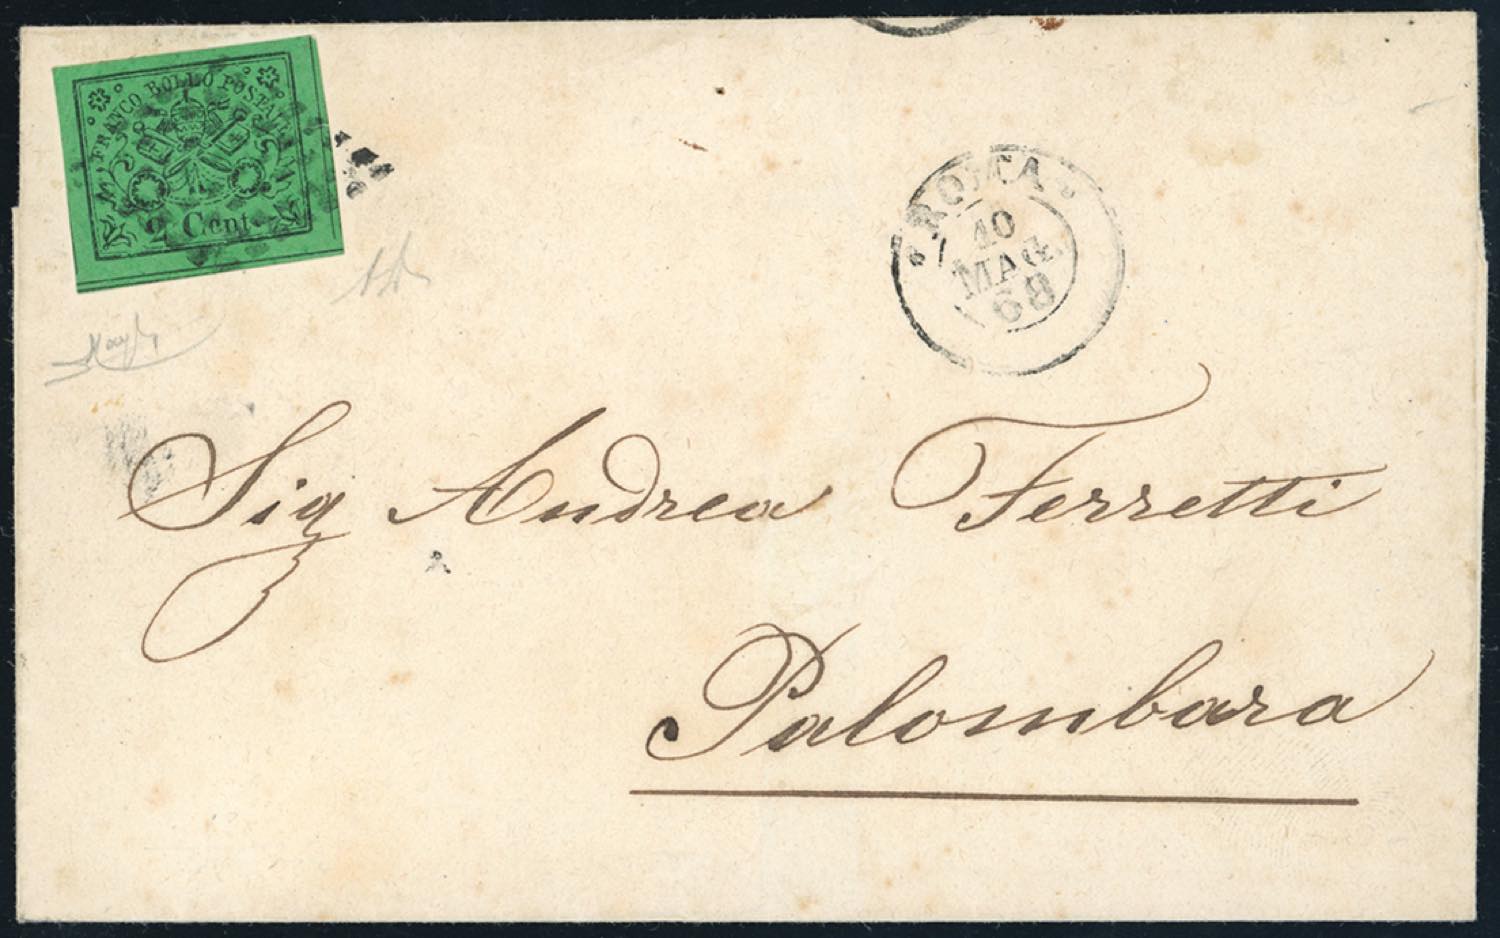 FRANCO BOLLO POSTALE
2 Cent.
ROMA
10
MAG.
68
Sig Andrea Ferretti
Palombara